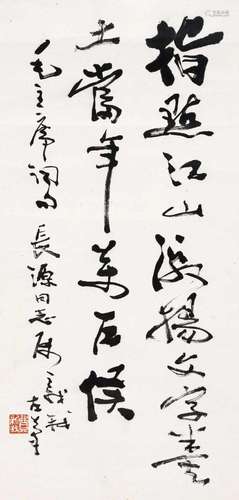 指點江山激揚文字糞
土當年萬户侯
毛主席詞句 長源同志屬